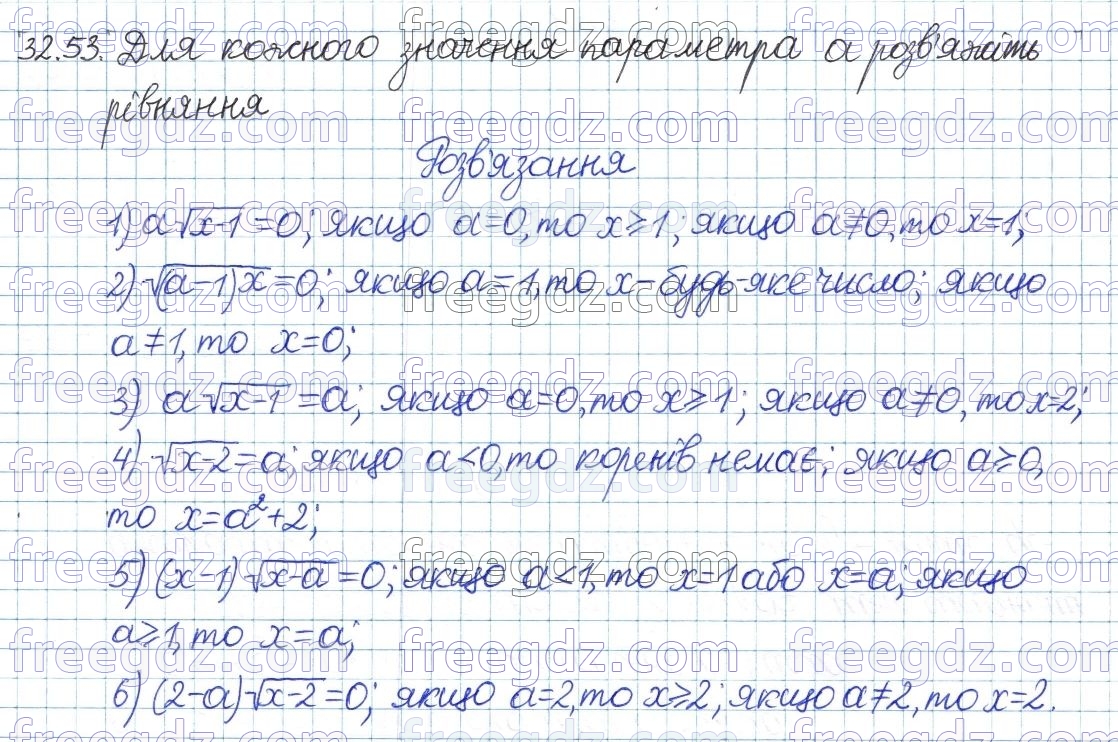 32.53. Для кожного значення параметра a розв'яжіть
рівняння
Розв'язання
1) a√(x-1) = 0; якщо a=0, то x≥1; якщо a≠0, то x=1;
2) √((a-1)x) = 0; якщо a=1, то x - будь-яке число; якщо
a≠1, то x=0;
3) a√(x-1) = a; якщо a=0, то x≥1; якщо a≠0, то x=2;
4) √(x-2) = a; якщо a<0, то коренів немає; якщо a≥0,
то x=a²+2;
5) (x-1)√(x-a) = 0; якщо a<1, то x=1 або x=a; якщо
a≥1, то x=a;
6) (2-a)√(x-2) = 0; якщо a=2, то x≥2; якщо a≠2, то x=2.
freegdz.com